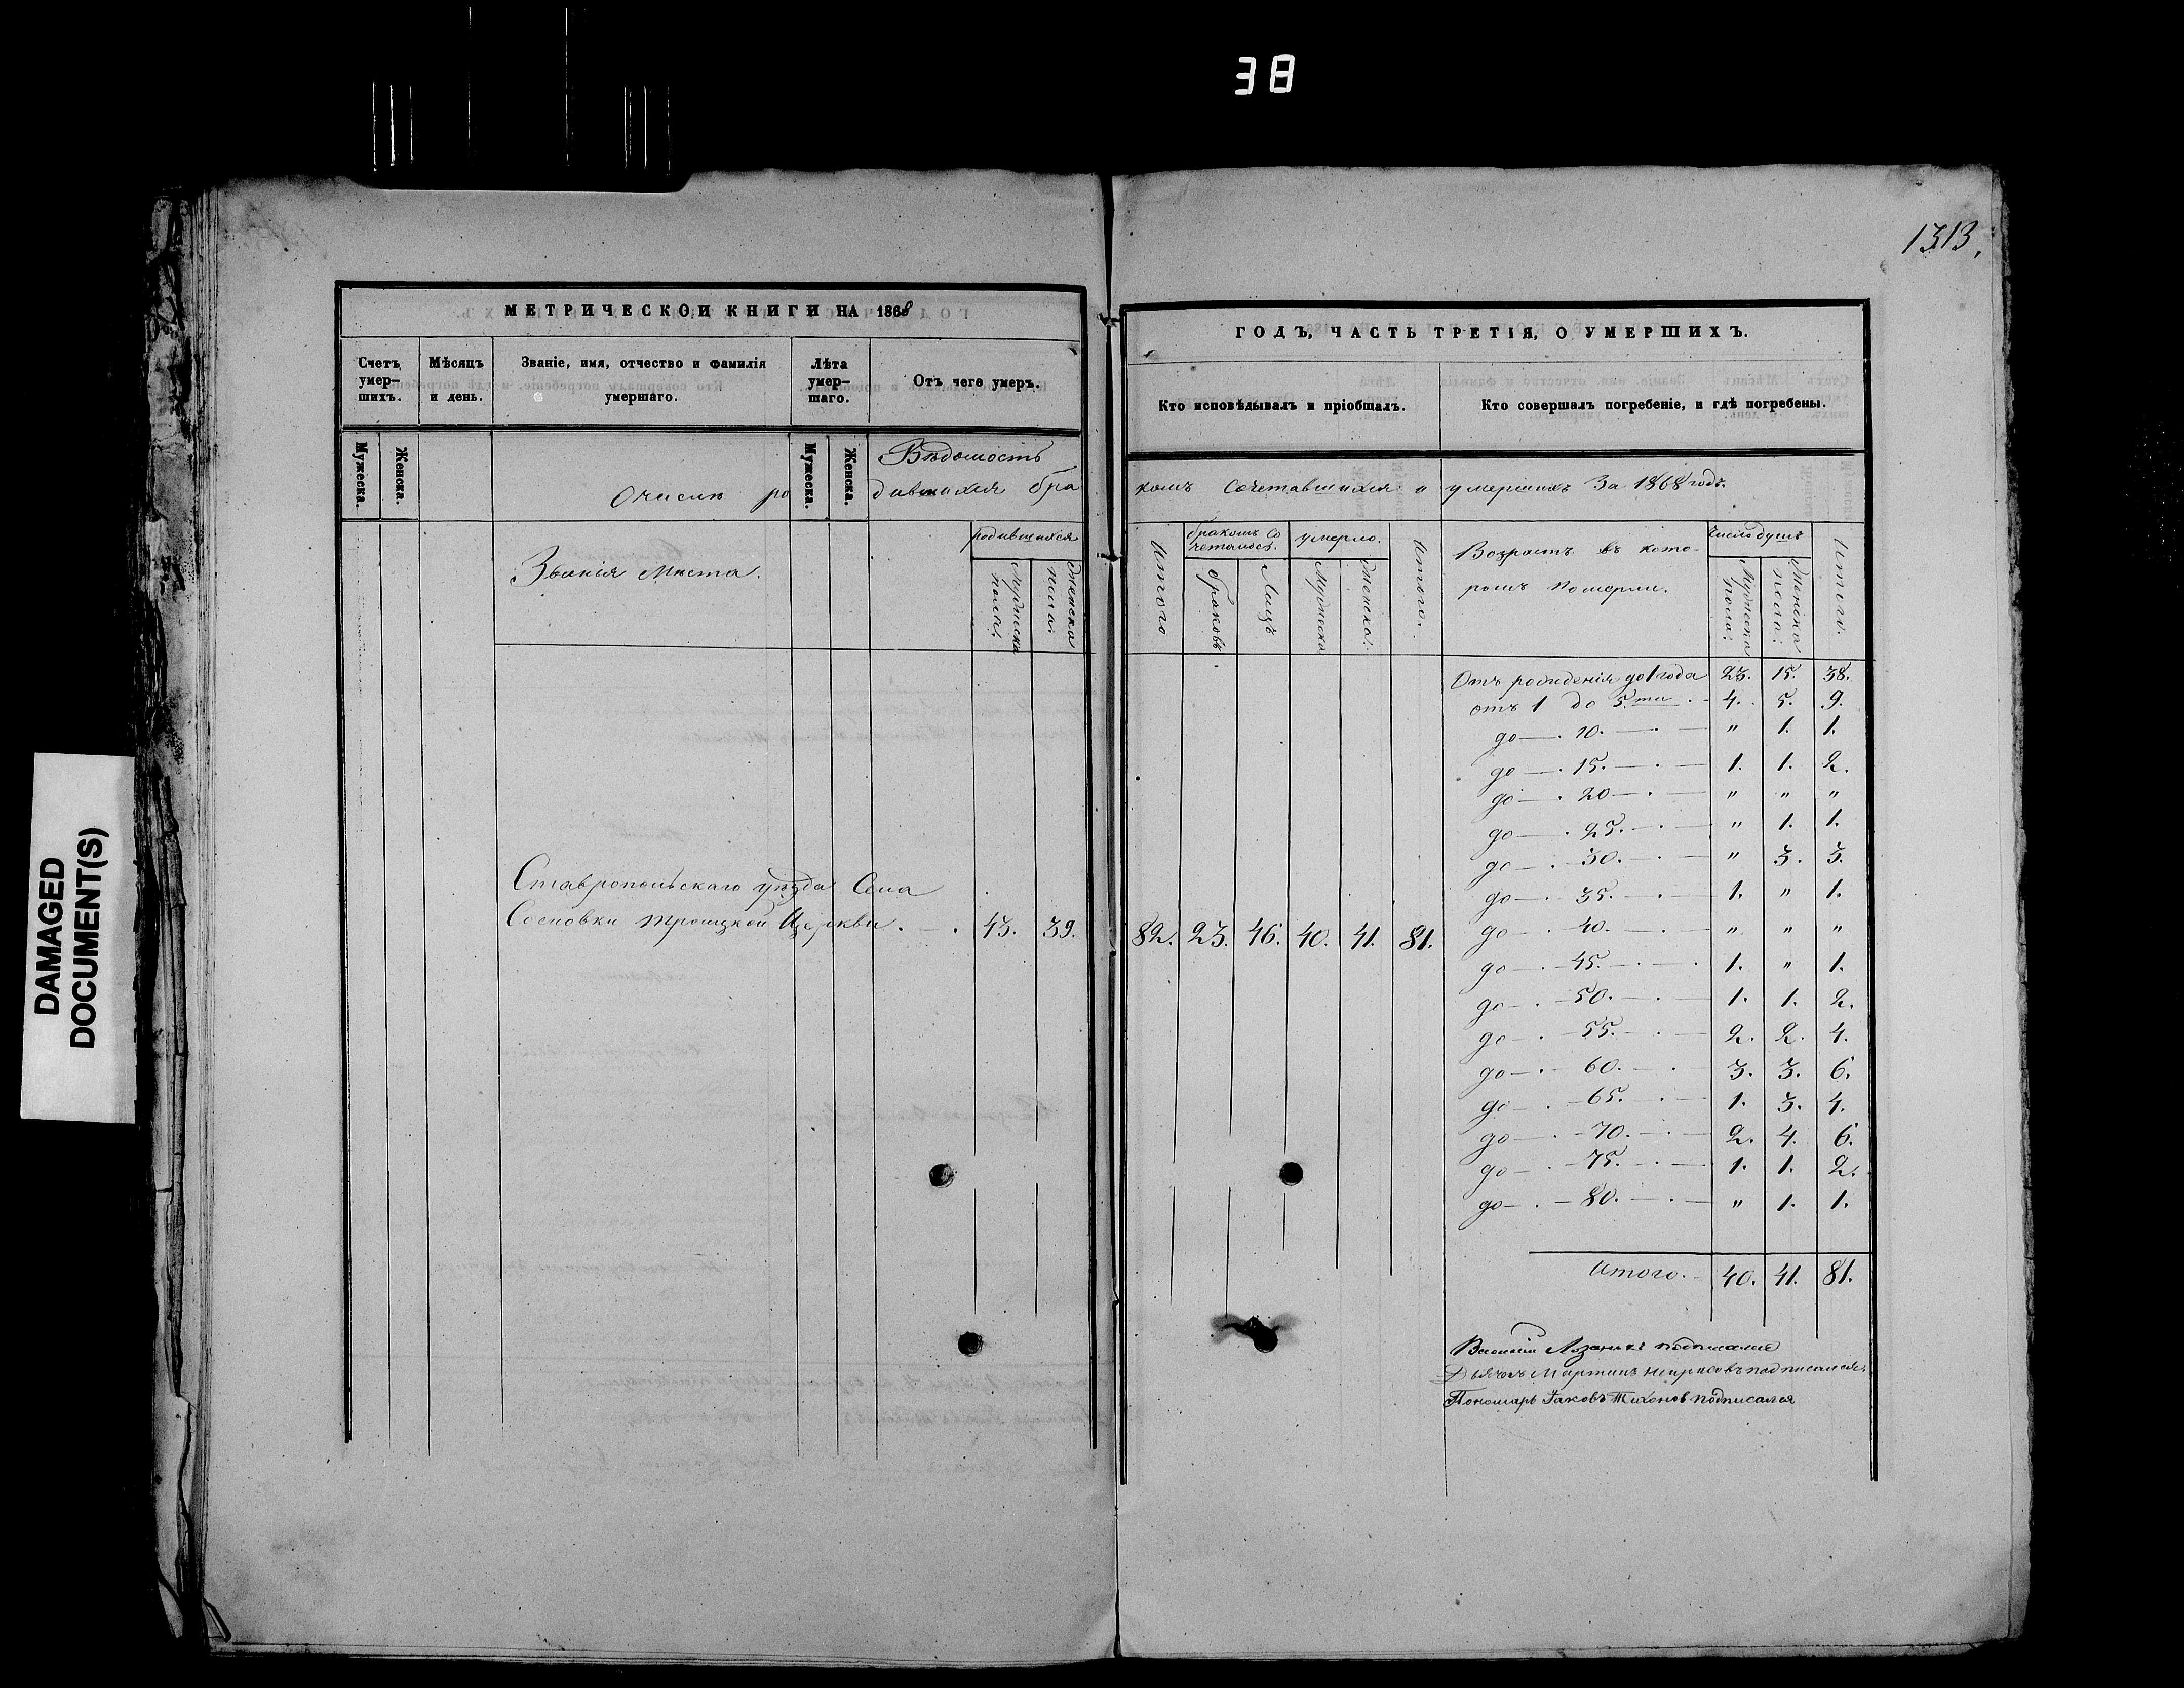 38
DAMAGED
DOCUMENT(S)
1313.
МЕТРИЧЕСКОИ КНИГИ НА 1868
Счетъ умер-шихъ.
Мѣсяцъ и день.
Званіе, имя, отчество и фамилія умершаго.
Лѣта умер-шаго.
Отъ чего умеръ.
Мужеска.
Женска.
Мужеска.
Женска.
Вѣдомость
О числѣ ро дившихся бра
Званія мѣста.
родившихся
Мужеска пола.
Женска пола.
Ставропольскаго уѣзда Села
Сосновки Троицкой Церкви. 43. 39.
ГОДЪ, ЧАСТЬ ТРЕТІЯ, О УМЕРШИХЪ.
Кто исповѣдывалъ и пріобщалъ.
Кто совершалъ погребеніе, и гдѣ погребены.
комъ сочетавшихся и умершихъ За 1868 годъ.
Итого
бракомъ Со
четалось.
браковъ
Лицъ
умерло.
Мужеска
Женска.
Итого.
Возрастъ въ кото-
ромъ померли.
Число душъ
Мужеска пола.
Женска пола.
Итого.
82. 23. 46. 40. 41. 81.
Отъ рожденія до 1 года 23. 15. 38.
отъ 1 до 5.ти 4. 5. 9.
до 10. " 1. 1.
до 15. 1. 1. 2.
до 20 " " "
до 25. " 1. 1.
до 30. " 3. 3.
до 35. 1. " 1.
до 40. " " "
до 45. 1. " 1.
до 50. 1. 1. 2.
до 55. 2. 2. 4.
до 60. 3. 3. 6.
до 65. 1. 3. 4.
до 70. 2. 4. 6.
до 75. 1. 1. 2.
до 80. " 1. 1.
Итого. 40. 41. 81.
Василій подписался
Дьячекъ Мартинъ подписался
Пономарь Іаковъ Тихонов подписался